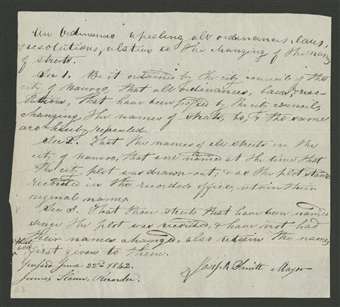 An Ordinance repealing all ordinances, laws,
resolutions, relative to the changing of the names
of streets.
Sec 1. Be it ordained by the city council of the
city of Nauvoo, that all ordinances, laws, & reso-
lutions, that have been passed by the city council
changing the names of streets, be, & the same
are hereby repealed.
Sec 2. That the names of all streets in the
city of Nauvoo, that were names at the time that
the city plot was drawn out, & as the plot stands
recorded in the recorders office, retain their
original names
Sec 3. That those streets that have been named
since the plot was recorded, & have not had
their names changed, also retain the names
first given to them.
Passed June 22nd 1842.
Joseph Smith Mayor
James Sloan, Recorder.